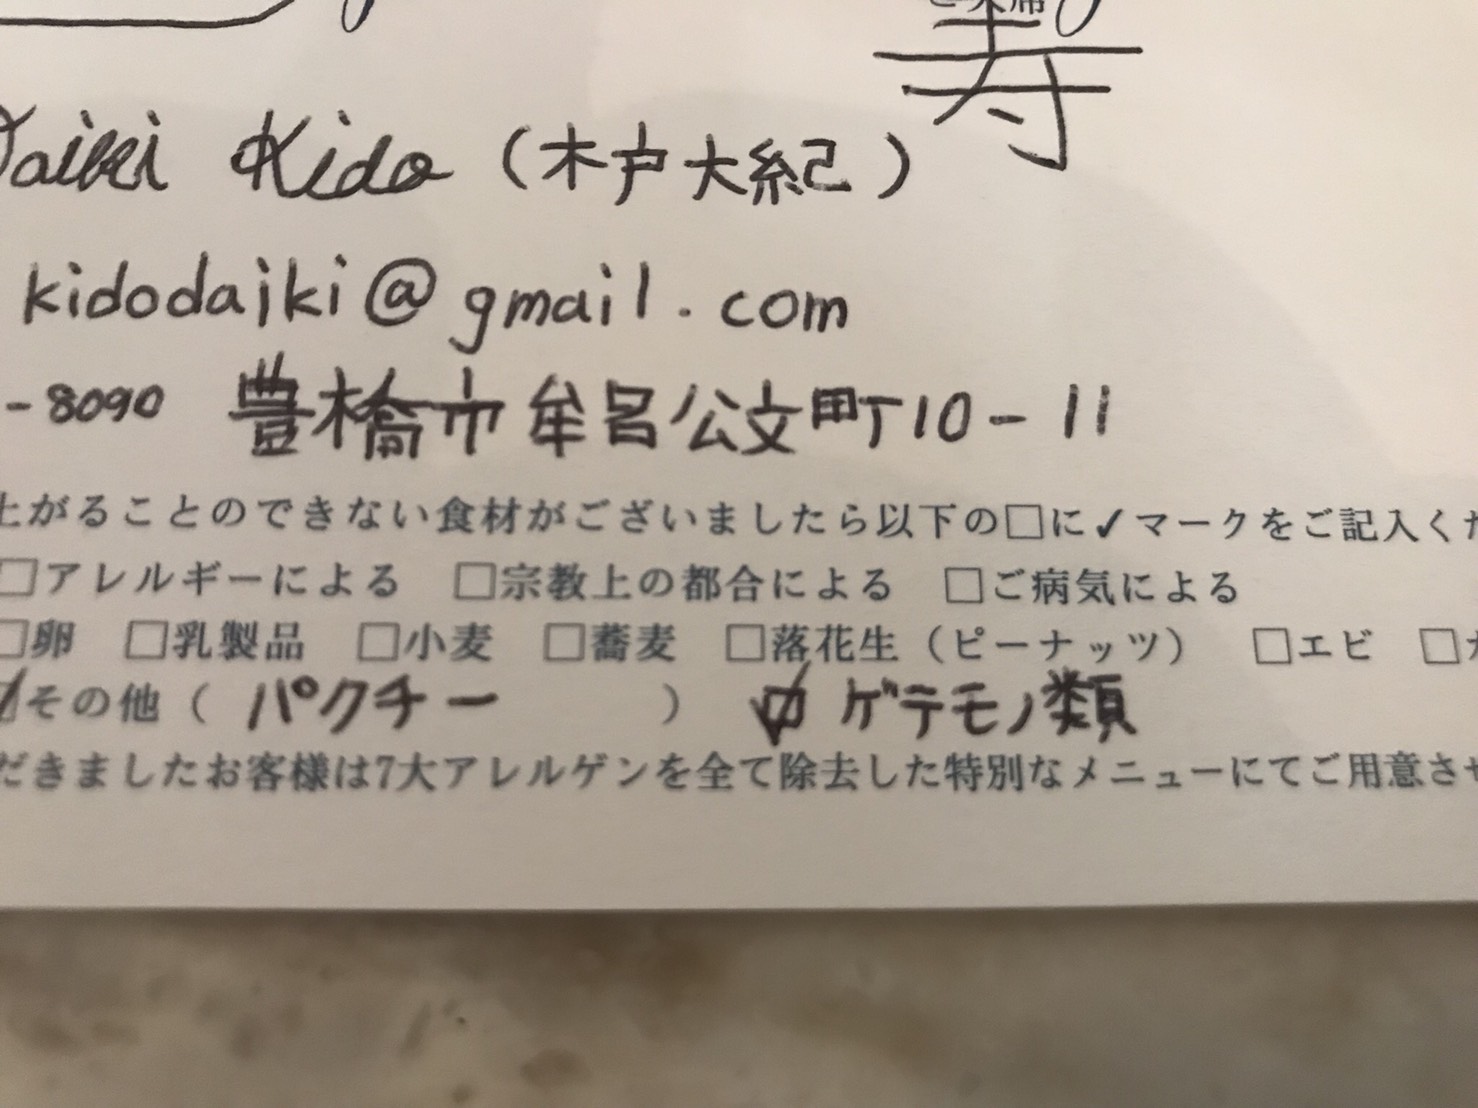 寿
Daiki Kido (木戸大紀)
kidodaiki@gmail.com
-8090 豊橋市牟呂公文町10-11
上がることのできない食材がございましたら以下の□に✓マークをご記入くだ
□アレルギーによる □宗教上の都合による □ご病気による
□卵 □乳製品 □小麦 □蕎麦 □落花生(ピーナッツ) □エビ □カ
☑その他( パクチー ) ☑ゲテモノ類
だきましたお客様は7大アレルゲンを全て除去した特別なメニューにてご用意させ